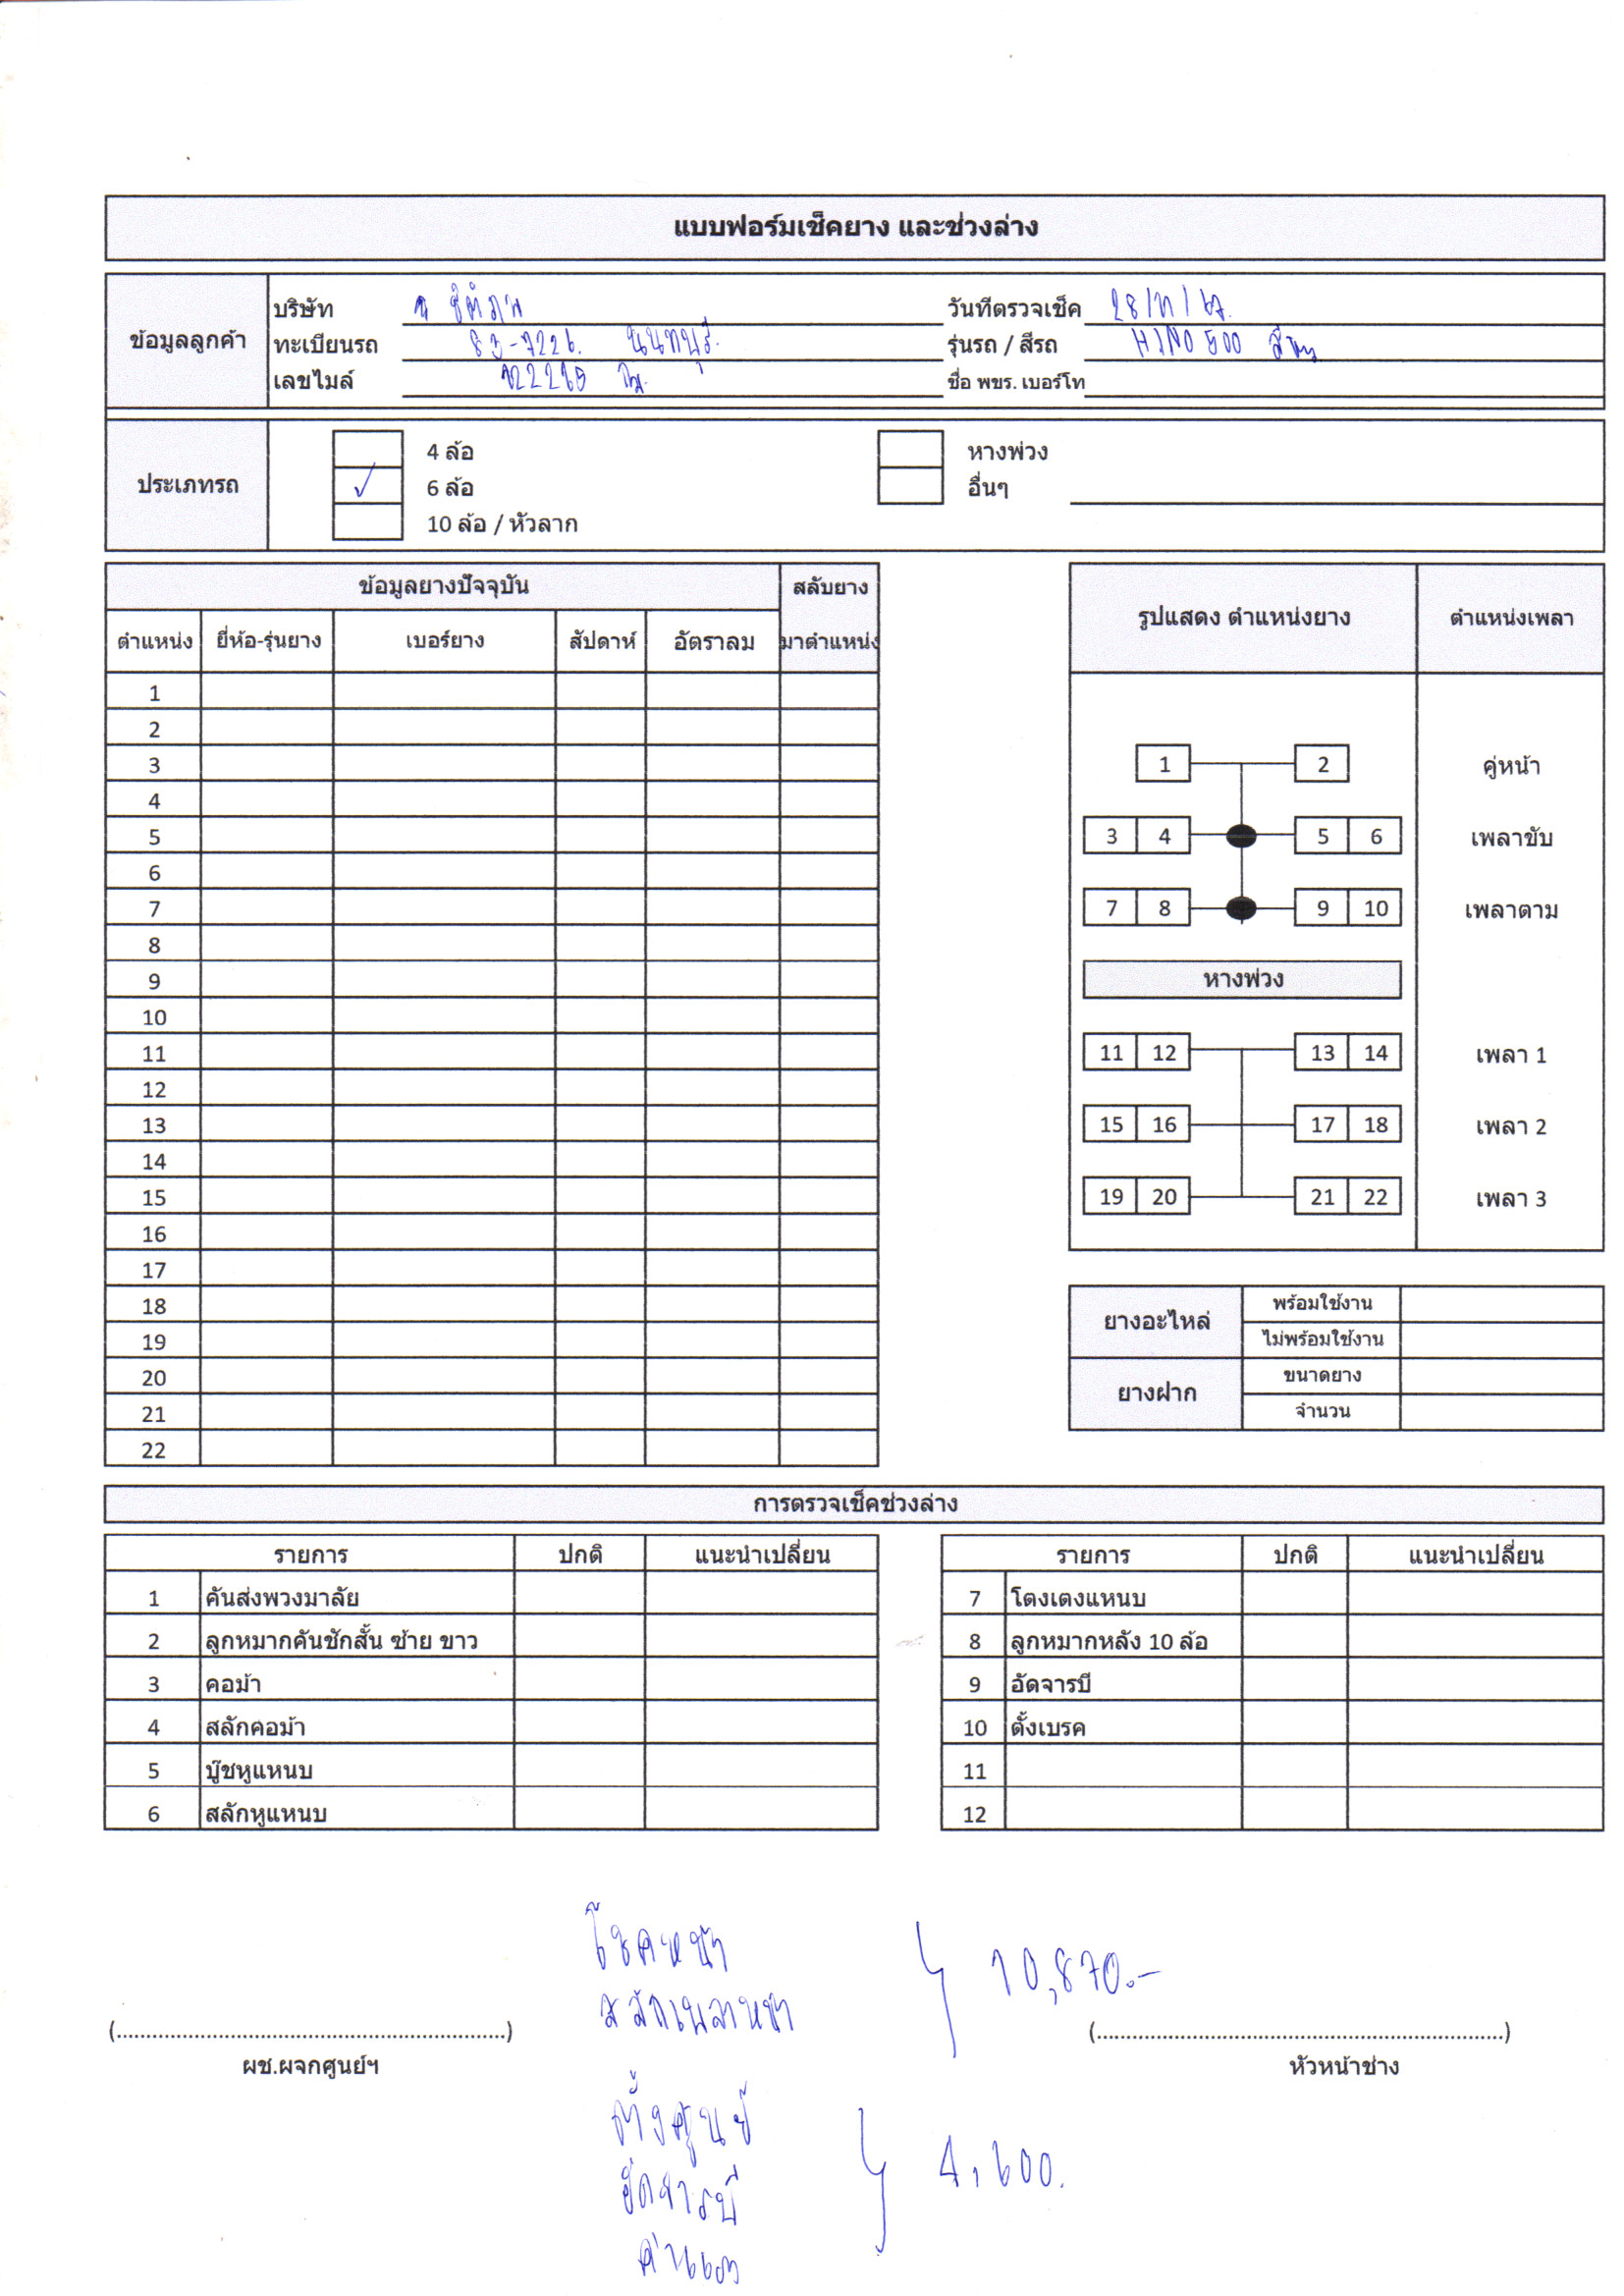 แบบฟอร์มเช็คยาง และช่วงล่าง
ข้อมูลลูกค้า
บริษัท
วันที่ตรวจเช็ค 28/11/67.
ทะเบียนรถ 83-7226. นนทบุรี.
รุ่นรถ / สีรถ HINO 500
เลขไมล์ กม.
ชื่อ พขร. เบอร์โท
ประเภทรถ
4 ล้อ
✓ 6 ล้อ
10 ล้อ / หัวลาก
หางพ่วง
อื่นๆ
ข้อมูลยางปัจจุบัน สลับยาง
ตำแหน่ง ยี่ห้อ-รุ่นยาง เบอร์ยาง สัปดาห์ อัตราลม มาตำแหน่ง
1
2
3
4
5
6
7
8
9
10
11
12
13
14
15
16
17
18
19
20
21
22
รูปแสดง ตำแหน่งยาง ตำแหน่งเพลา
1 2 คู่หน้า
3 4 5 6 เพลาขับ
7 8 9 10 เพลาตาม
หางพ่วง
11 12 13 14 เพลา 1
15 16 17 18 เพลา 2
19 20 21 22 เพลา 3
ยางอะไหล่ พร้อมใช้งาน
ไม่พร้อมใช้งาน
ยางฝาก ขนาดยาง
จำนวน
การตรวจเช็คช่วงล่าง
รายการ ปกติ แนะนำเปลี่ยน
1 คันส่งพวงมาลัย
2 ลูกหมากคันชักสั้น ซ้าย ขาว
3 คอม้า
4 สลักคอม้า
5 บู๊ชหูแหนบ
6 สลักหูแหนบ
รายการ ปกติ แนะนำเปลี่ยน
7 โตงเตงแหนบ
8 ลูกหมากหลัง 10 ล้อ
9 อัดจารบี
10 ตั้งเบรค
11
12
โช๊คหน้า
สลักเพลาหน้า
10,870.-
(....................................................................)
ผช.ผจกศูนย์ฯ
(....................................................................)
หัวหน้าช่าง
ตั้งศูนย์
อัดจารบี
ค่าแรง
4,600.